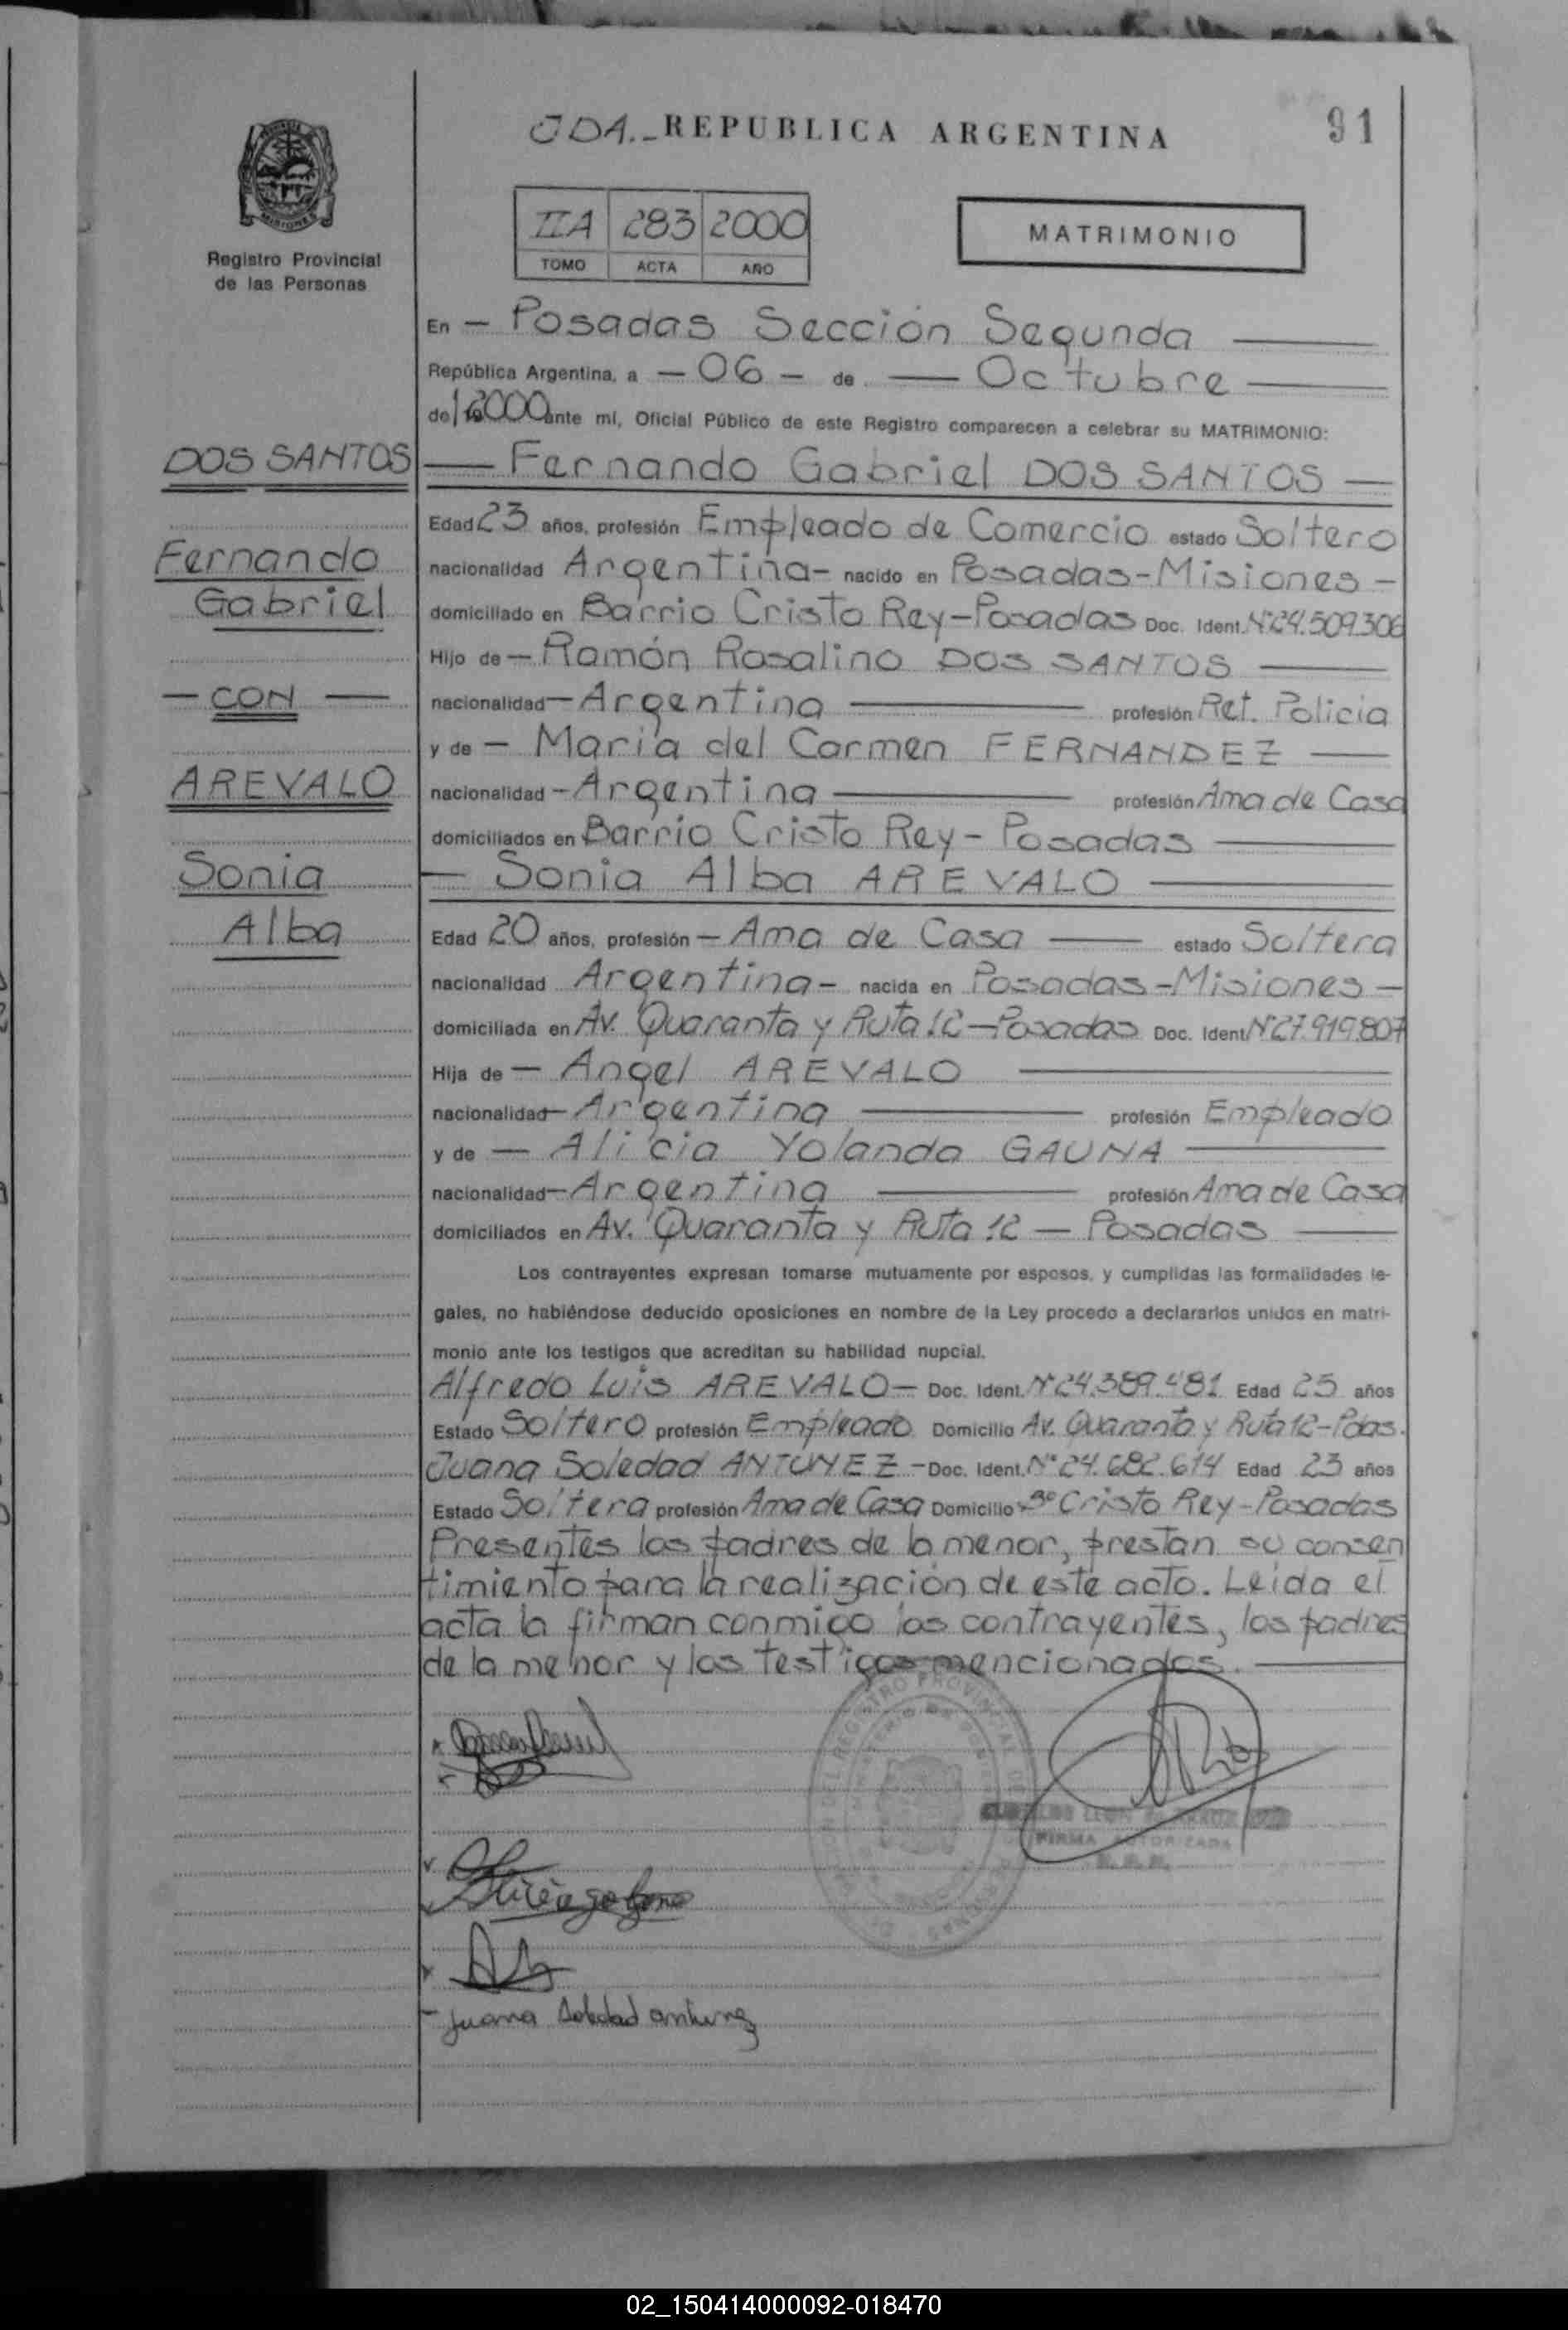 JDA.- REPUBLICA ARGENTINA
91
Registro Provincial
de las Personas
IIA 283 2000
TOMO ACTA AÑO
MATRIMONIO
En - Posadas Sección Segunda
República Argentina, a - 06 - de Octubre
de 2000 ante mí, Oficial Público de este Registro comparecen a celebrar su MATRIMONIO:
DOS SANTOS
Fernando
Gabriel
- CON -
AREVALO
Sonia
Alba
Fernando Gabriel DOS SANTOS -
Edad 23 años, profesión Empleado de Comercio estado Soltero
nacionalidad Argentina - nacido en Posadas - Misiones -
domiciliado en Barrio Cristo Rey - Posadas Doc. Ident. Nº 24.509.306
Hijo de - Ramón Rosalino DOS SANTOS
nacionalidad - Argentina profesión Ret. Policia
y de - María del Carmen FERNANDEZ
nacionalidad - Argentina profesión Ama de Casa
domiciliados en Barrio Cristo Rey - Posadas
- Sonia Alba AREVALO
Edad 20 años, profesión - Ama de Casa estado Soltera
nacionalidad Argentina - nacida en Posadas - Misiones -
domiciliada en Av. Quaranta y Ruta 12 - Posadas Doc. Ident. Nº 27.919.807
Hija de - Angel AREVALO
nacionalidad - Argentina profesión Empleado
y de - Alicia Yolanda GAUNA
nacionalidad - Argentina profesión Ama de Casa
domiciliados en Av. Quaranta y Ruta 12 - Posadas
Los contrayentes expresan tomarse mutuamente por esposos, y cumplidas las formalidades le-
gales, no habiéndose deducido oposiciones en nombre de la Ley procedo a declararlos unidos en matri-
monio ante los testigos que acreditan su habilidad nupcial.
Alfredo Luis AREVALO - Doc. Ident. Nº 24.389.481 Edad 25 años
Estado Soltero profesión Empleado Domicilio Av. Quaranta y Ruta 12 - Pdas.
Juana Soledad ANTUNEZ - Doc. Ident. Nº 24.682.614 Edad 23 años
Estado Soltera profesión Ama de Casa Domicilio Bº Cristo Rey - Posadas
Presentes los padres de la menor, prestan su consen
timiento para la realización de este acto. Leída el
acta la firman conmigo los contrayentes, los padres
de la menor y los testigos mencionados.
FIRMA AUTORIZADA
Juana Soledad Antunez
02_150414000092-018470